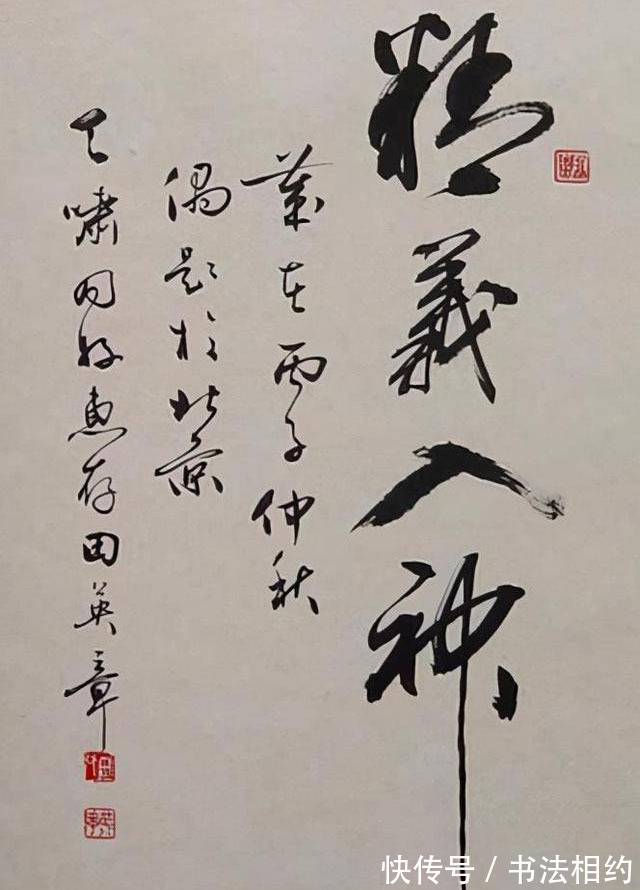 精義入神
歲在丙子仲秋
偶題於北京
天嘯同好惠存田英章
快传号 / 书法相约